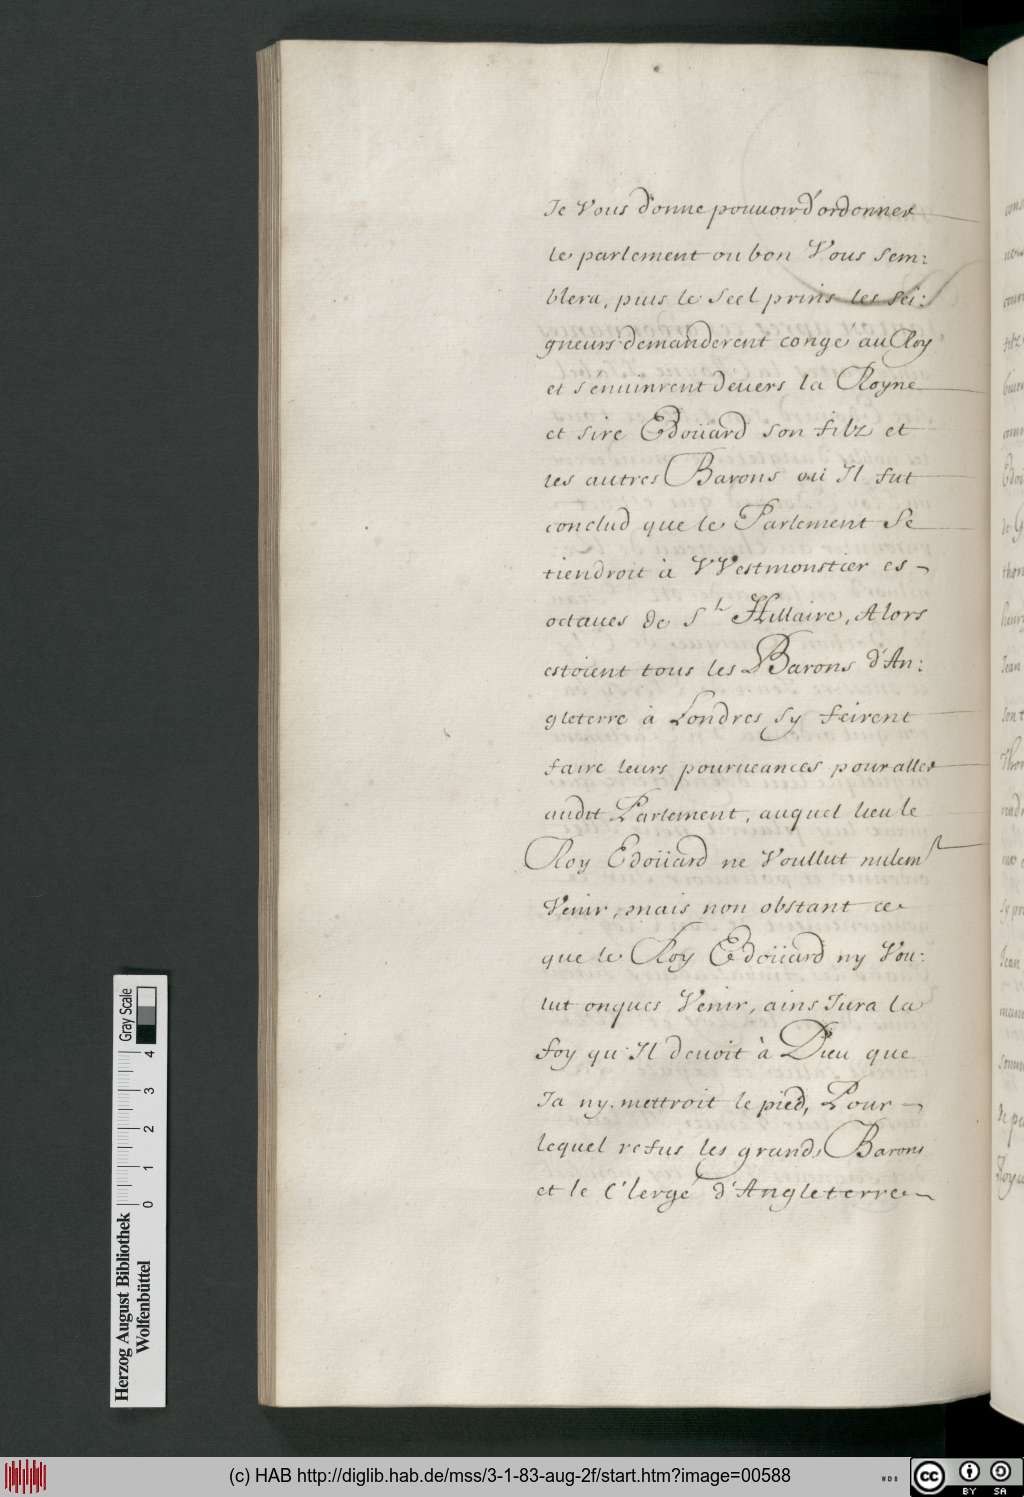 Je Vous donne pouuoir d'ordonner
le parlement ou bon Vous sem:
blera, puis le Seel prins les Sei:
gneurs demanderent congé au Roy
et s'enuinrent deuers la Royne
et sire Edoüard son filz et
les autres Barons ou Il fut
conclud que le Parlement Se
tiendroit à VVestmonstier es
octaues de St Hillaire, Alors
estoient tous les Barons d'An:
gleterre à Londres sy feirent
faire leurs pourueances pour aller
audit Parlement, auquel lieu le
Roy Edoüard ne Voullut nulemt
Venir, mais non obstant ce
que le Roy Edoüard ny Vou:
lut onques Venir, ains Jura la
foy qu'Il deuoit à Dieu que
Ja ny mettroit le pied, Pour
lequel refus les grands Barons
et le Clergé d'Angleterre
Herzog August Bibliothek
Wolfenbüttel
0 1 2 3 4
Gray Scale
(c) HAB http://diglib.hab.de/mss/3-1-83-aug-2f/start.htm?image=00588
WDB
cc
BY SA